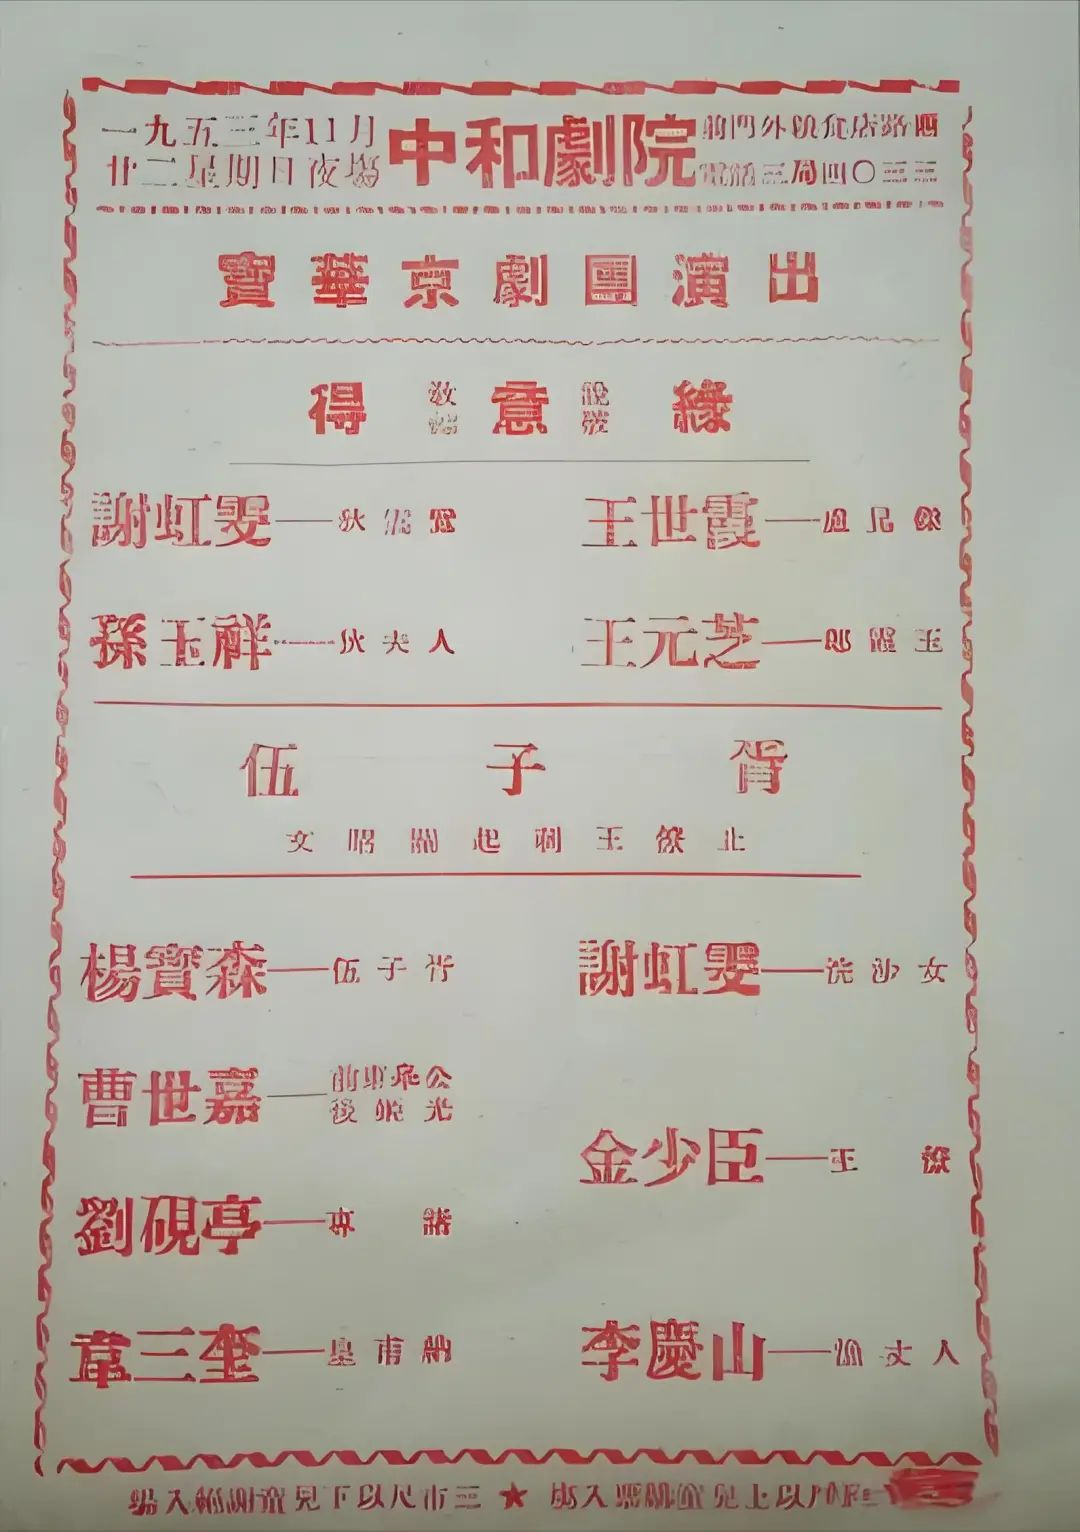 一九五三年11月
廿二星期日夜場
中和劇院
前門外糧食店路西
電話三局四〇三三三
寶華京劇團演出
得意緣
教鏢
說破
謝虹雯——狄雲鸞
王世霞——盧昆傑
孫玉祥——狄夫人
王元芝——郎霞玉
伍子胥
文昭關起刺王僚止
楊寶森——伍子胥
謝虹雯——浣沙女
曹世嘉——前東皋公
後姬光
金少臣——王僚
劉硯亭——專諸
韋三奎——皇甫訥
李慶山——漁丈人
場入絕謝資見下以尺市三★